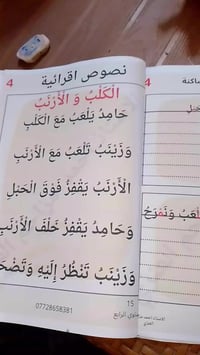 نصوص اقرائية
4
الْكَلْبُ وَ الْأَرْنَبُ
حَامِدُ يَلْعَبُ مَعَ الْكَلْبِ
وَزَيْنَبُ تَلْعَبُ مَعَ الْأَرْنَبِ
الْأَرْنَبُ يَقْفِزُ فَوْقَ الْحَبْلِ
وَحَامِدُ يَقْفِزُ خَلْفَ الْأَرْنَبِ
وَزَيْنَبُ تَنْظُرُ إِلَيْهِ وَتَضْحَ
15
07728658381
4